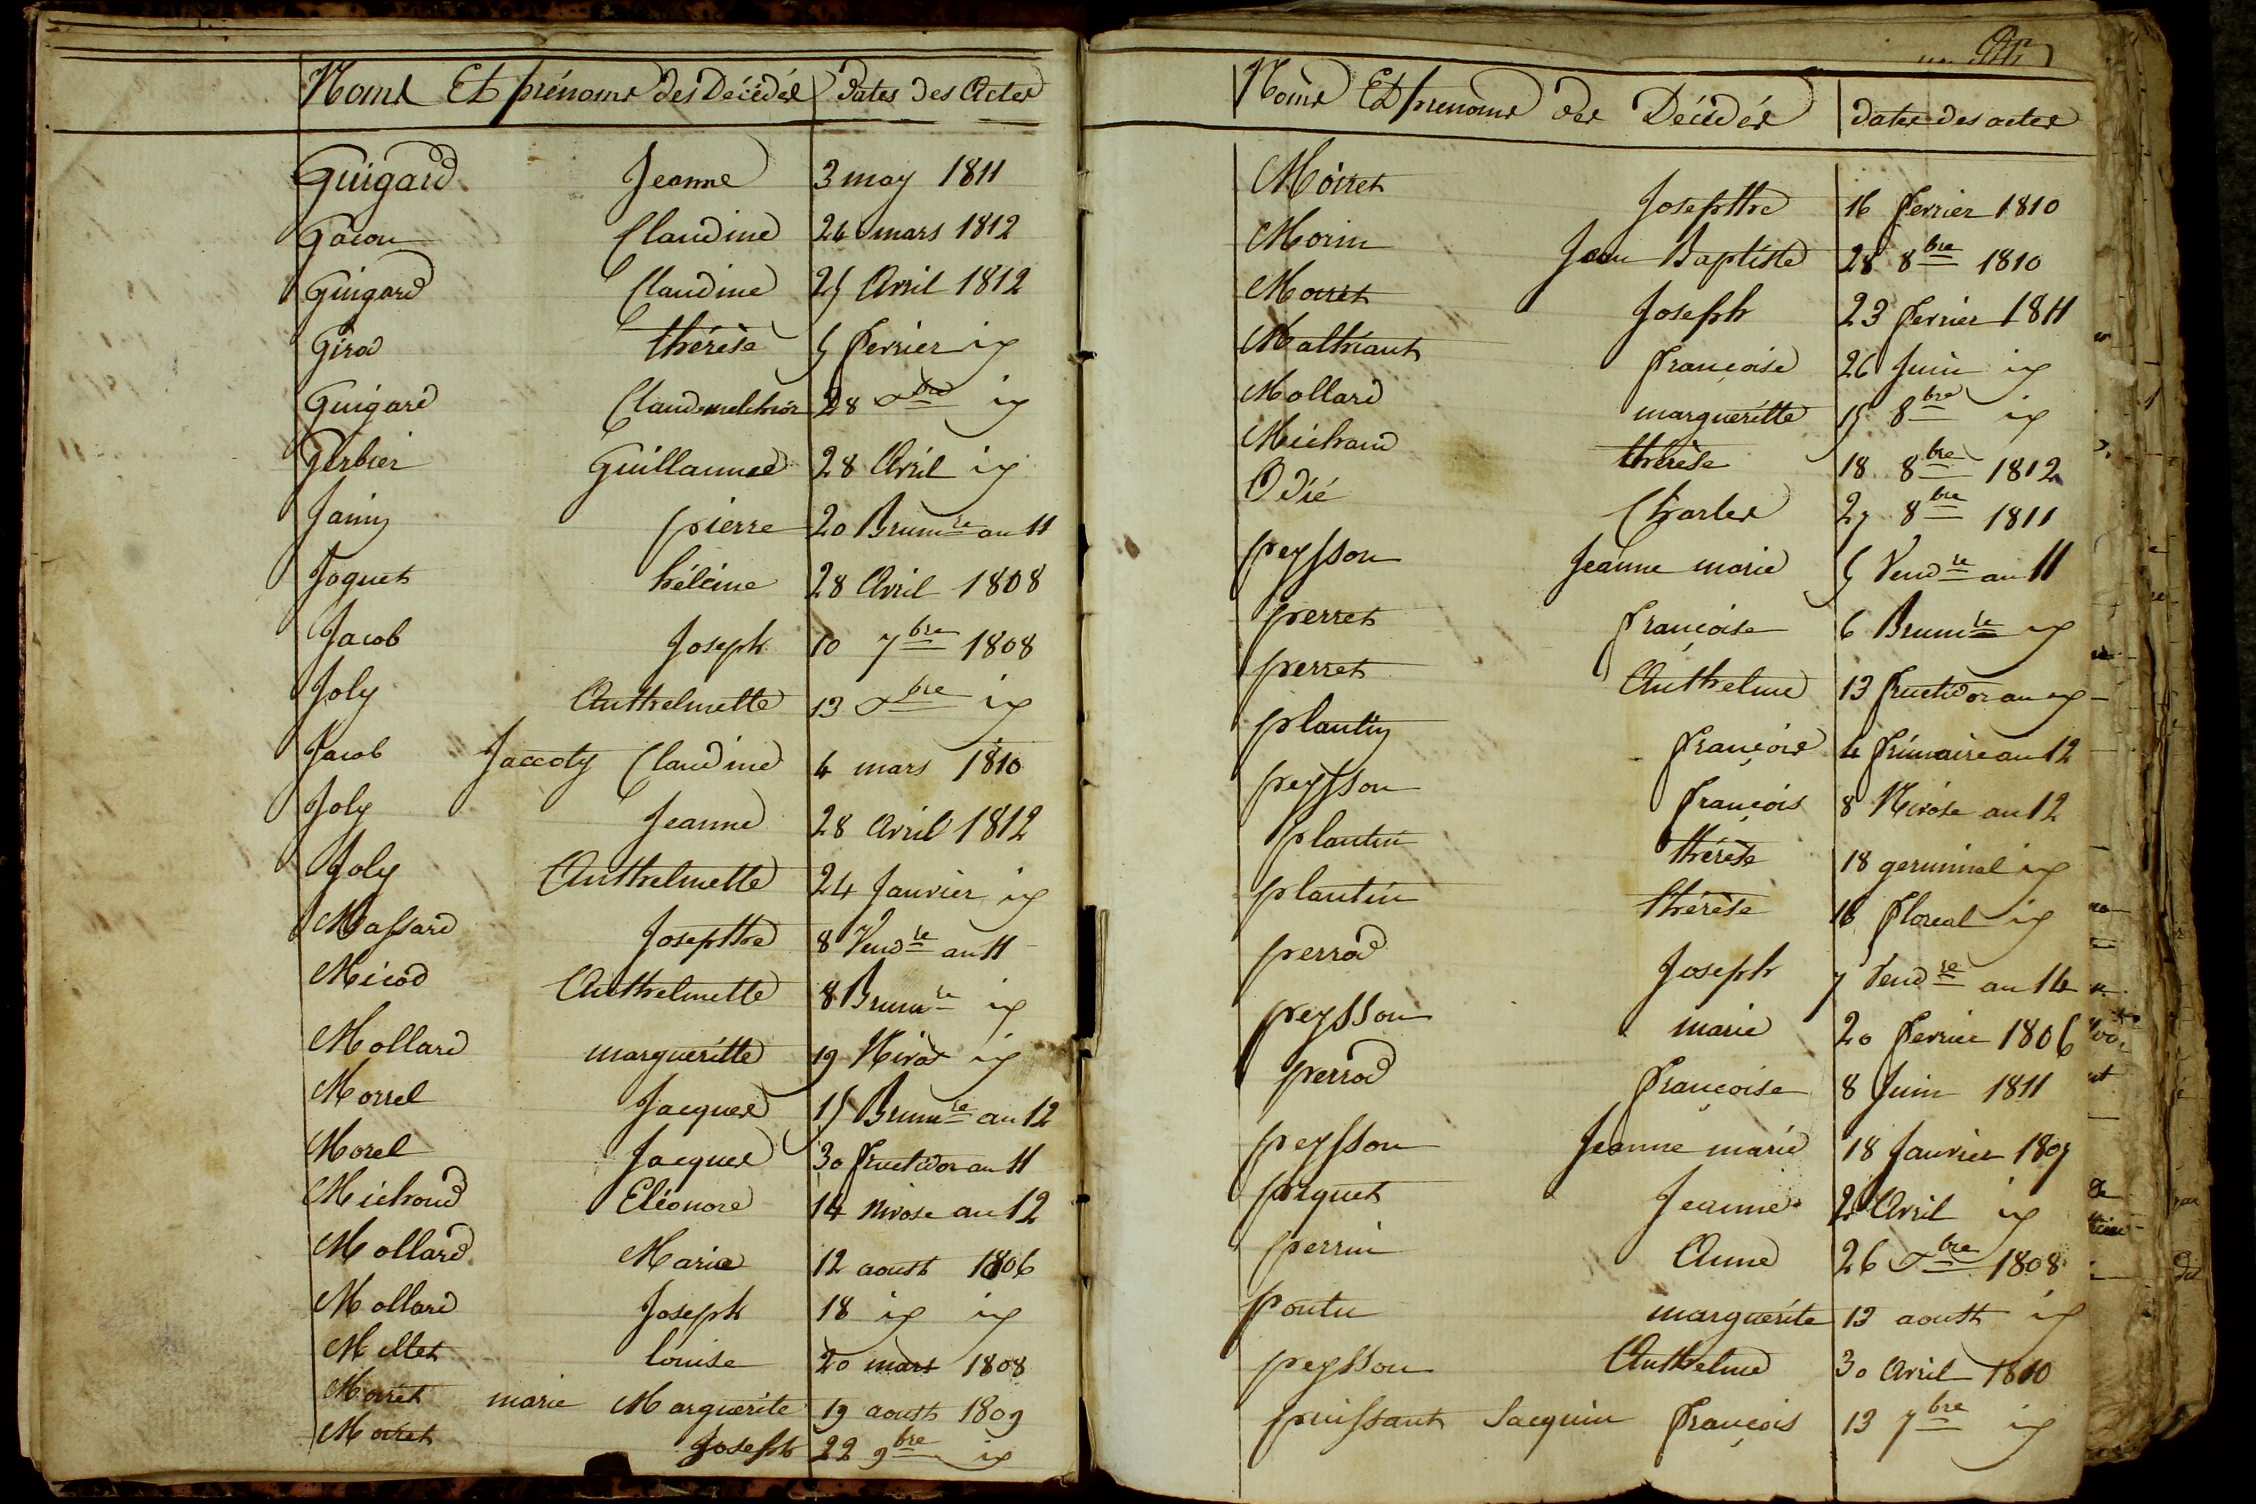 Noms Et prénoms des Décédés Dates des Actes
Guigard Jeanne 3 may 1811
Gacon Claudine 26 mars 1812
Guigard Claudine 25 Avril 1812
Girod thérèse 5 fevrier id
Guigard Claud melchior 28 xbre id
Gerbier Guillaume 28 Avril id
Janin pierre 20 Brumre an 11
Joguet héleine 28 Avril 1808
Jacob Joseph 10 7bre 1808
Joly Anthelmette 13 xbre id
Jacob Jaccoty Claudine 4 mars 1810
Joly Jeanne 28 Avril 1812
Joly Anthelmette 24 Janvier id
Massard Josephte 8 Vendre an 11
Micod Anthelmette 8 Brumre id
Mollard margueritte 19 Nivos id
Morrel Jacques 15 Brumre an 12
Morel Jacques 30 fructidor an 11
Michoud Eléonore 14 nivose an 12
Mollard Marie 12 aoust 1806
Mollard Joseph 18 id id
Millet louise 20 mars 1808
Moiret marie Marguerite 19 aoust 1809
Moiret Joseph 22 9bre id
Noms Et prenoms des Décédés dates des actes
Moiret Josephte 16 fevrier 1810
Morin Jean Baptiste 28 8bre 1810
Moiret Joseph 23 fevrier 1811
Mathiant françoise 26 Juin id
Mollard margueritte 15 8bre id
Michaud thérèse 18 8bre 1812
Odié Charles 27 8bre 1811
peysson Jeanne marie 5 Vendre an 11
perret françoise 6 Brumre id
perret Anthelme 13 fructidor an id
plantin françois 4 frimaire an 12
peysson françois 8 Nivose an 12
plantin thérèse 18 germinal id
plantin thérèse 16 floreal id
perrod Joseph 7 Vendre an 14
peysson marie 20 fevrier 1806
perrod françoise 8 Juin 1811
peysson Jeanne marie 18 Janvier 1807
piquet Jeanne 2 Avril id
perrin Anne 26 xbre 1808
pontu marguerite 13 aoust id
peysson Anthelme 30 Avril 1810
puissant Jacquin françois 13 7bre id